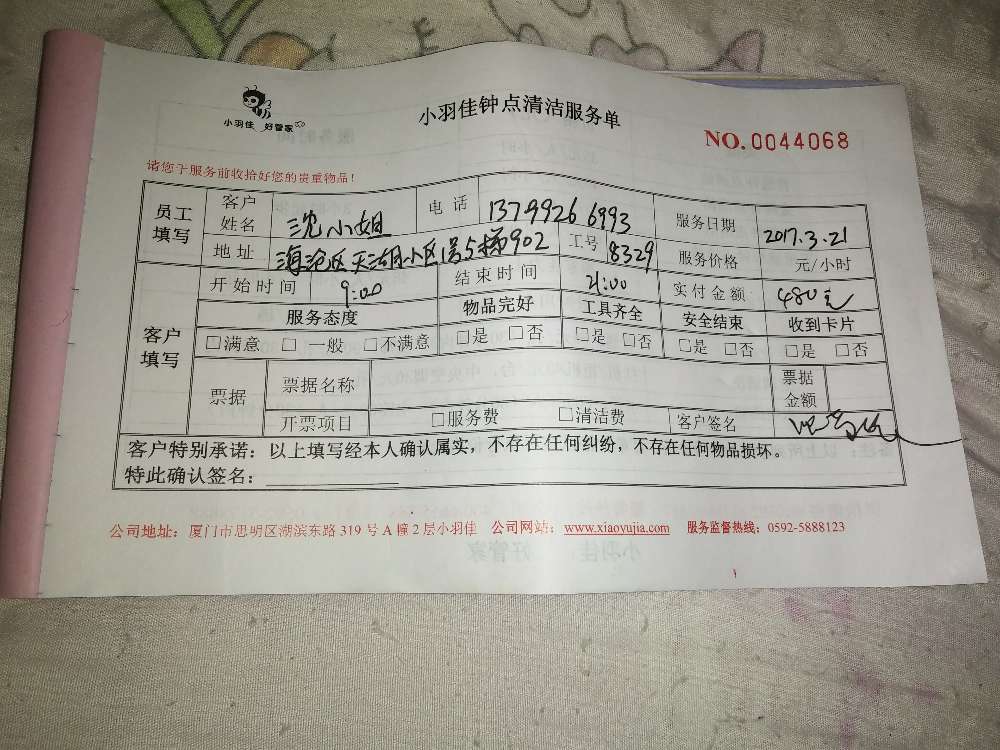 小羽佳 好管家
小羽佳钟点清洁服务单
NO.0044068
请您于服务前收拾好您的贵重物品！
员工填写 客户姓名 沈小姐 电话 13799266993 服务日期 2017.3.21
地址 海沧区天湖小区1号5梯902 工号 8329 服务价格 元/小时
客户填写 开始时间 9:00 结束时间 21:00 实付金额 480元
服务态度 物品完好 工具齐全 安全结束 收到卡片
□满意 □ 一般 □不满意 □是 □否 □是 □否 □是 □否 □是 □否
票据 票据名称 票据金额
开票项目 □服务费 □清洁费 客户签名
客户特别承诺：以上填写经本人确认属实，不存在任何纠纷，不存在任何物品损坏。
特此确认签名：
公司地址：厦门市思明区湖滨东路319号A幢2层小羽佳 公司网站：www.xiaoyujia.com 服务监督热线：0592-5888123